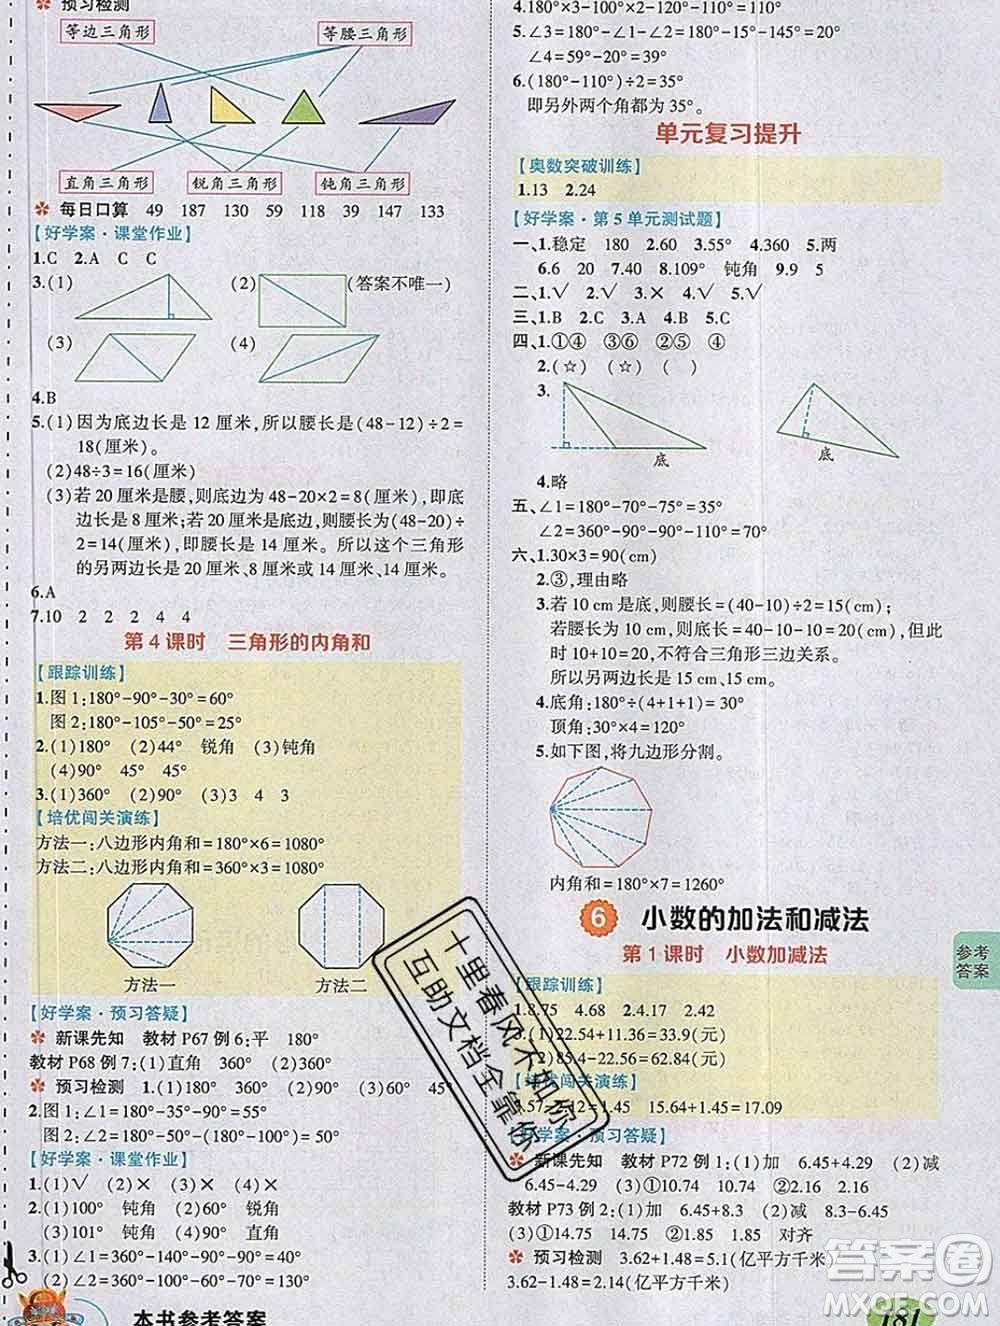 预习检测
等边三角形 等腰三角形
直角三角形 锐角三角形 钝角三角形
每日口算 49 187 130 59 118 39 147 133
【好学案·课堂作业】
1.C 2.A C C
3.(1) (2) (答案不唯一)
(3) (4)
4.B
5.(1)因为底边长是 12 厘米,所以腰长是(48-12)÷2=
18(厘米)
(2)48÷3=16(厘米)
(3)若 20 厘米是腰,则底边长是 48-20×2=8(厘米),即底
边长是 8 厘米;若 20 厘米是底边长,则腰长是(48-20)÷
2=14(厘米),即腰长是 14 厘米。所以这个三角形
的另两边长是 20 厘米、8 厘米或 14 厘米、14 厘米。
6.A
7.10 2 2 2 4 4
第 4 课时 三角形的内角和
【跟踪训练】
1.图 1:180°-90°-30°=60°
图 2:180°-105°-50°=25°
2.(1)180° (2)44° 锐角 (3)钝角
(4)90° 45° 45°
3.(1)360° (2)90° (3)3 4 3
【培优闯关演练】
方法一:八边形内角和=180°×6=1080°
方法二:八边形内角和=360°×3=1080°
方法一 方法二
【好学案·预习答疑】
新课先知 教材 P67 例 6:平 180°
教材 P68 例 7:(1)直角 360° (2)360° 360°
预习检测 1.(1)90° (2)90° (3)60° 45°
2.图 1:∠1=180°-35°-90°=55°
图 2:∠1=180°-50°-(180°-100°)=50°
【好学案·课堂作业】
1.(1)√ (2)× (3)× (4)×
2.(1)100° 钝角 (2)60° 锐角
(3)101° 钝角 (4)90° 直角
3.(1)∠1=360°-140°-90°-90°=40°
(2)∠1=360°-120°-60°-60°=120°
本书参考答案
4.180°-(180°-110°)×2=70°×2=110°
5.∠3=180°-∠1-∠2=180°-15°-145°=20°
∠4=59°-∠3=59°-20°=39°
6.(180°-110°)÷2=35°
即另外两个角都为 35°。
单元复习提升
【奥数突破训练】
1.13 2.24
【好学案·第 5 单元测试题】
一、1.稳定 180 2.60 3.55° 4.360 5.两
6.6 20 7.40 8.109° 钝角 9.9 5
二、1.√ 2.√ 3.× 4.× 5.√
三、1.B 2.C 3.A 4.B 5.C
四、1.①④ ③⑥ ②⑤ ④
2.(☆) (☆) ( )
3. 底 底
4.略
五、∠1=180°-70°-75°=35°
∠2=360°-90°-90°-110°=70°
六、1.30×3=90(cm)
2.③,理由略
3.若 10 cm 是底,则腰长=(40-10)÷2=15(cm)
若 10 cm 是腰,则底边长=40-10-10=20(cm),但此
时 10+10=20,不符合三角形三边关系。
所以另两边长是 15 cm、15 cm。
4.底角:180°÷(4+1+1)=30°
顶角:30°×4=120°
5.如下图,将九边形分割。
内角和=180°×7=1260°
6 小数的加法和减法
第 1 课时 小数加减法
【跟踪训练】
1.8.75 4.68 2.4.17 4.02
3.(1)22.54+11.36=33.9(元)
(2)85.4-22.56=62.84(元)
【培优闯关演练】
15.64+1.45=17.09
【好学案·预习答疑】
新课先知 教材 P72 例 1:(1)加 6.45+4.29 (2)减
教材 P73 例 2:(1)加 6.45+8.3 (2)减 8.3-6.45
(3)①14.75 14.75 ②1.85 1.85 对齐
预习检测 3.62+1.48=5.1(亿平方千米)
3.62-1.48=2.14(亿平方千米)
参考
答案
181
十里春风不如你
互助文档全靠你
答案圈
MXQE.COM